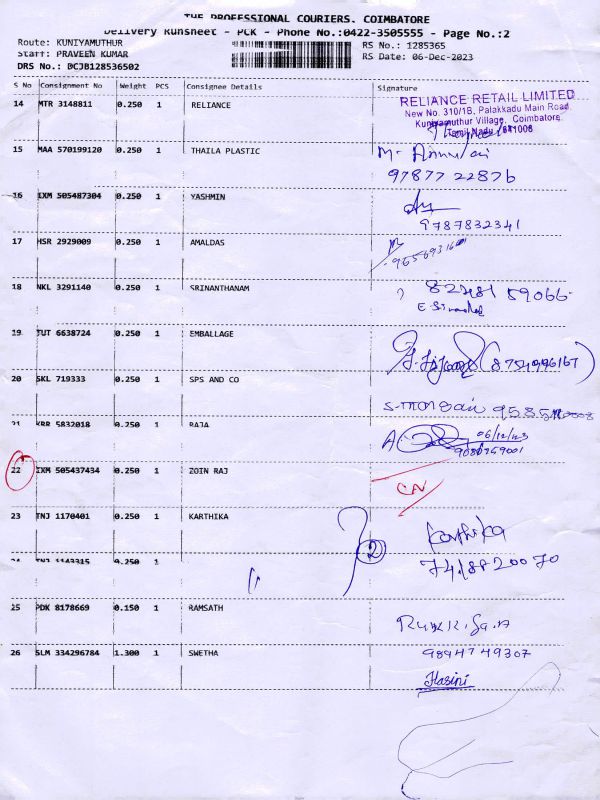 THE PROFESSIONAL COURIERS. COIMBATORE
Delivery Runsheet - PCK - Phone No.:0422-3505555 - Page No.:2
Route: KUNIYAMUTHUR
Start: PRAVEEN KUMAR
DRS No.: DCJB128536502
RS No.: 1285365
RS Date: 06-Dec-2023
S No Consignment No Weight PCS Consignee Details Signature
14 MTR 3148811 0.250 1 RELIANCE
RELIANCE RETAIL LIMITED
New No. 310/1B, Palakkadu Main Road,
Kuniyamuthur Village, Coimbatore,
Tamil Nadu 641008
15 MAA 570199120 0.250 1 THAILA PLASTIC
97877 22876
16 IXM 505487304 0.250 1 YASHMIN
9787832341
17 HSR 2929009 0.250 1 AMALDAS
18 NKL 3291140 0.250 1 SRINANTHANAM
59066
19 TUT 6638724 0.250 1 EMBALLAGE
20 SKL 719333 0.250 1 SPS AND CO
21 KRR 5832018 0.250 1 RAJA
06/12/23
22 IXM 505437434 0.250 1 ZOIN RAJ
23 TNJ 1170401 0.250 1 KARTHIKA
2
Karthika
24 TNJ 1143315 0.250 1
25 PDK 8178669 0.150 1 RAMSATH
26 SLM 334296784 1.300 1 SWETHA
9894749307
Hasini